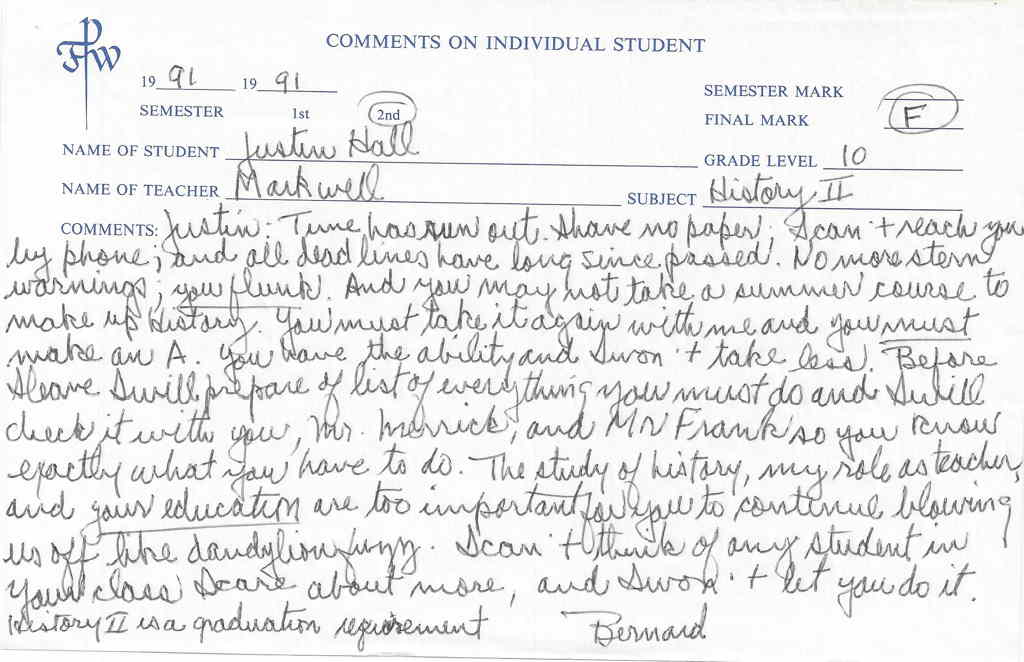 FW
COMMENTS ON INDIVIDUAL STUDENT
19 91 19 91
SEMESTER MARK
SEMESTER 1st 2nd
FINAL MARK F
NAME OF STUDENT Justin Hall GRADE LEVEL 10
NAME OF TEACHER Markwell SUBJECT History II
COMMENTS: Justin: Time has run out. I have no paper; I can't reach you
by phone; and all deadlines have long since passed. No more stern
warnings; you flunk. And you may not take a summer course to
make up History. You must take it again with me and you must
make an A. You have the ability and I won't take less. Before
I leave I will prepare of list of everything you must do and I will
check it with you, Mr. Merrick, and Mr Frank so you know
exactly what you have to do. The study of history, my role as teacher,
and your education are too important for you to continue blowing
us off like dandylion fuzz. I can't think of any student in
your class I care about more, and I won't let you do it.
History II is a graduation requirement Bernard